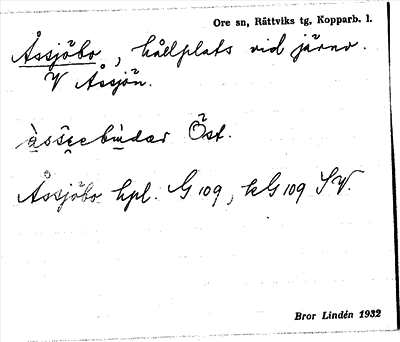 Ore sn, Rättviks tg, Kopparb. l.
Åssjöbo, hållplats vid järnv.
V Åssjön.
Öst.
Åssjöbo hpl. G 109, kG 109 SV.
Bror Lindén 1932